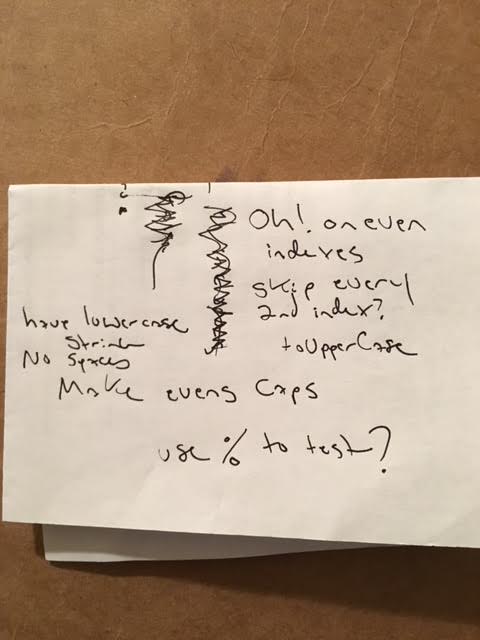 Oh! on even
indexes
skip every
2nd index?
toUpperCase
have lowercase
string
No spaces
Make evens Caps
use % to test?